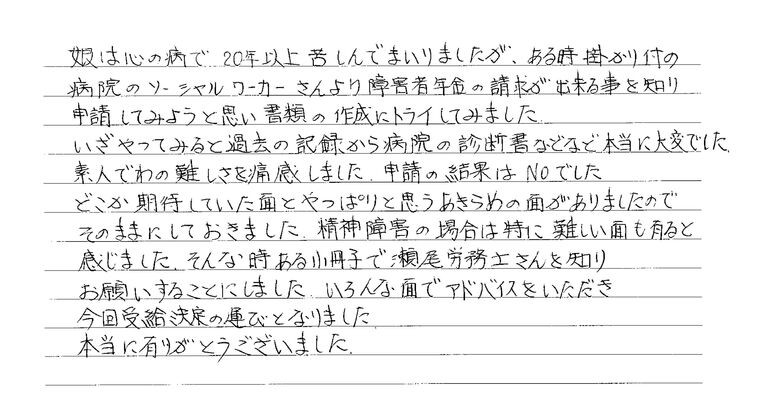 娘は心の病で 20年以上苦しんでまいりましたが、ある時掛かり付の
病院のソーシャルワーカーさんより障害者年金の請求が出来る事を知り
申請してみようと思い書類の作成にトライしてみました
いざやってみると過去の記録から病院の診断書などなど本当に大変でした.
素人でわの難しさを痛感しました. 申請の結果は NOでした
どこか期待していた面とやっぱりと思うあきらめの面がありましたので
そのままにしておきました. 精神障害の場合は特に難しい面も有ると
感じました. そんな時ある小冊子で瀬尾労務士さんを知り
お願いすることにしました. いろんな面でアドバイスをいただき
今回受給決定の運びとなりました
本当に有りがとうございました.